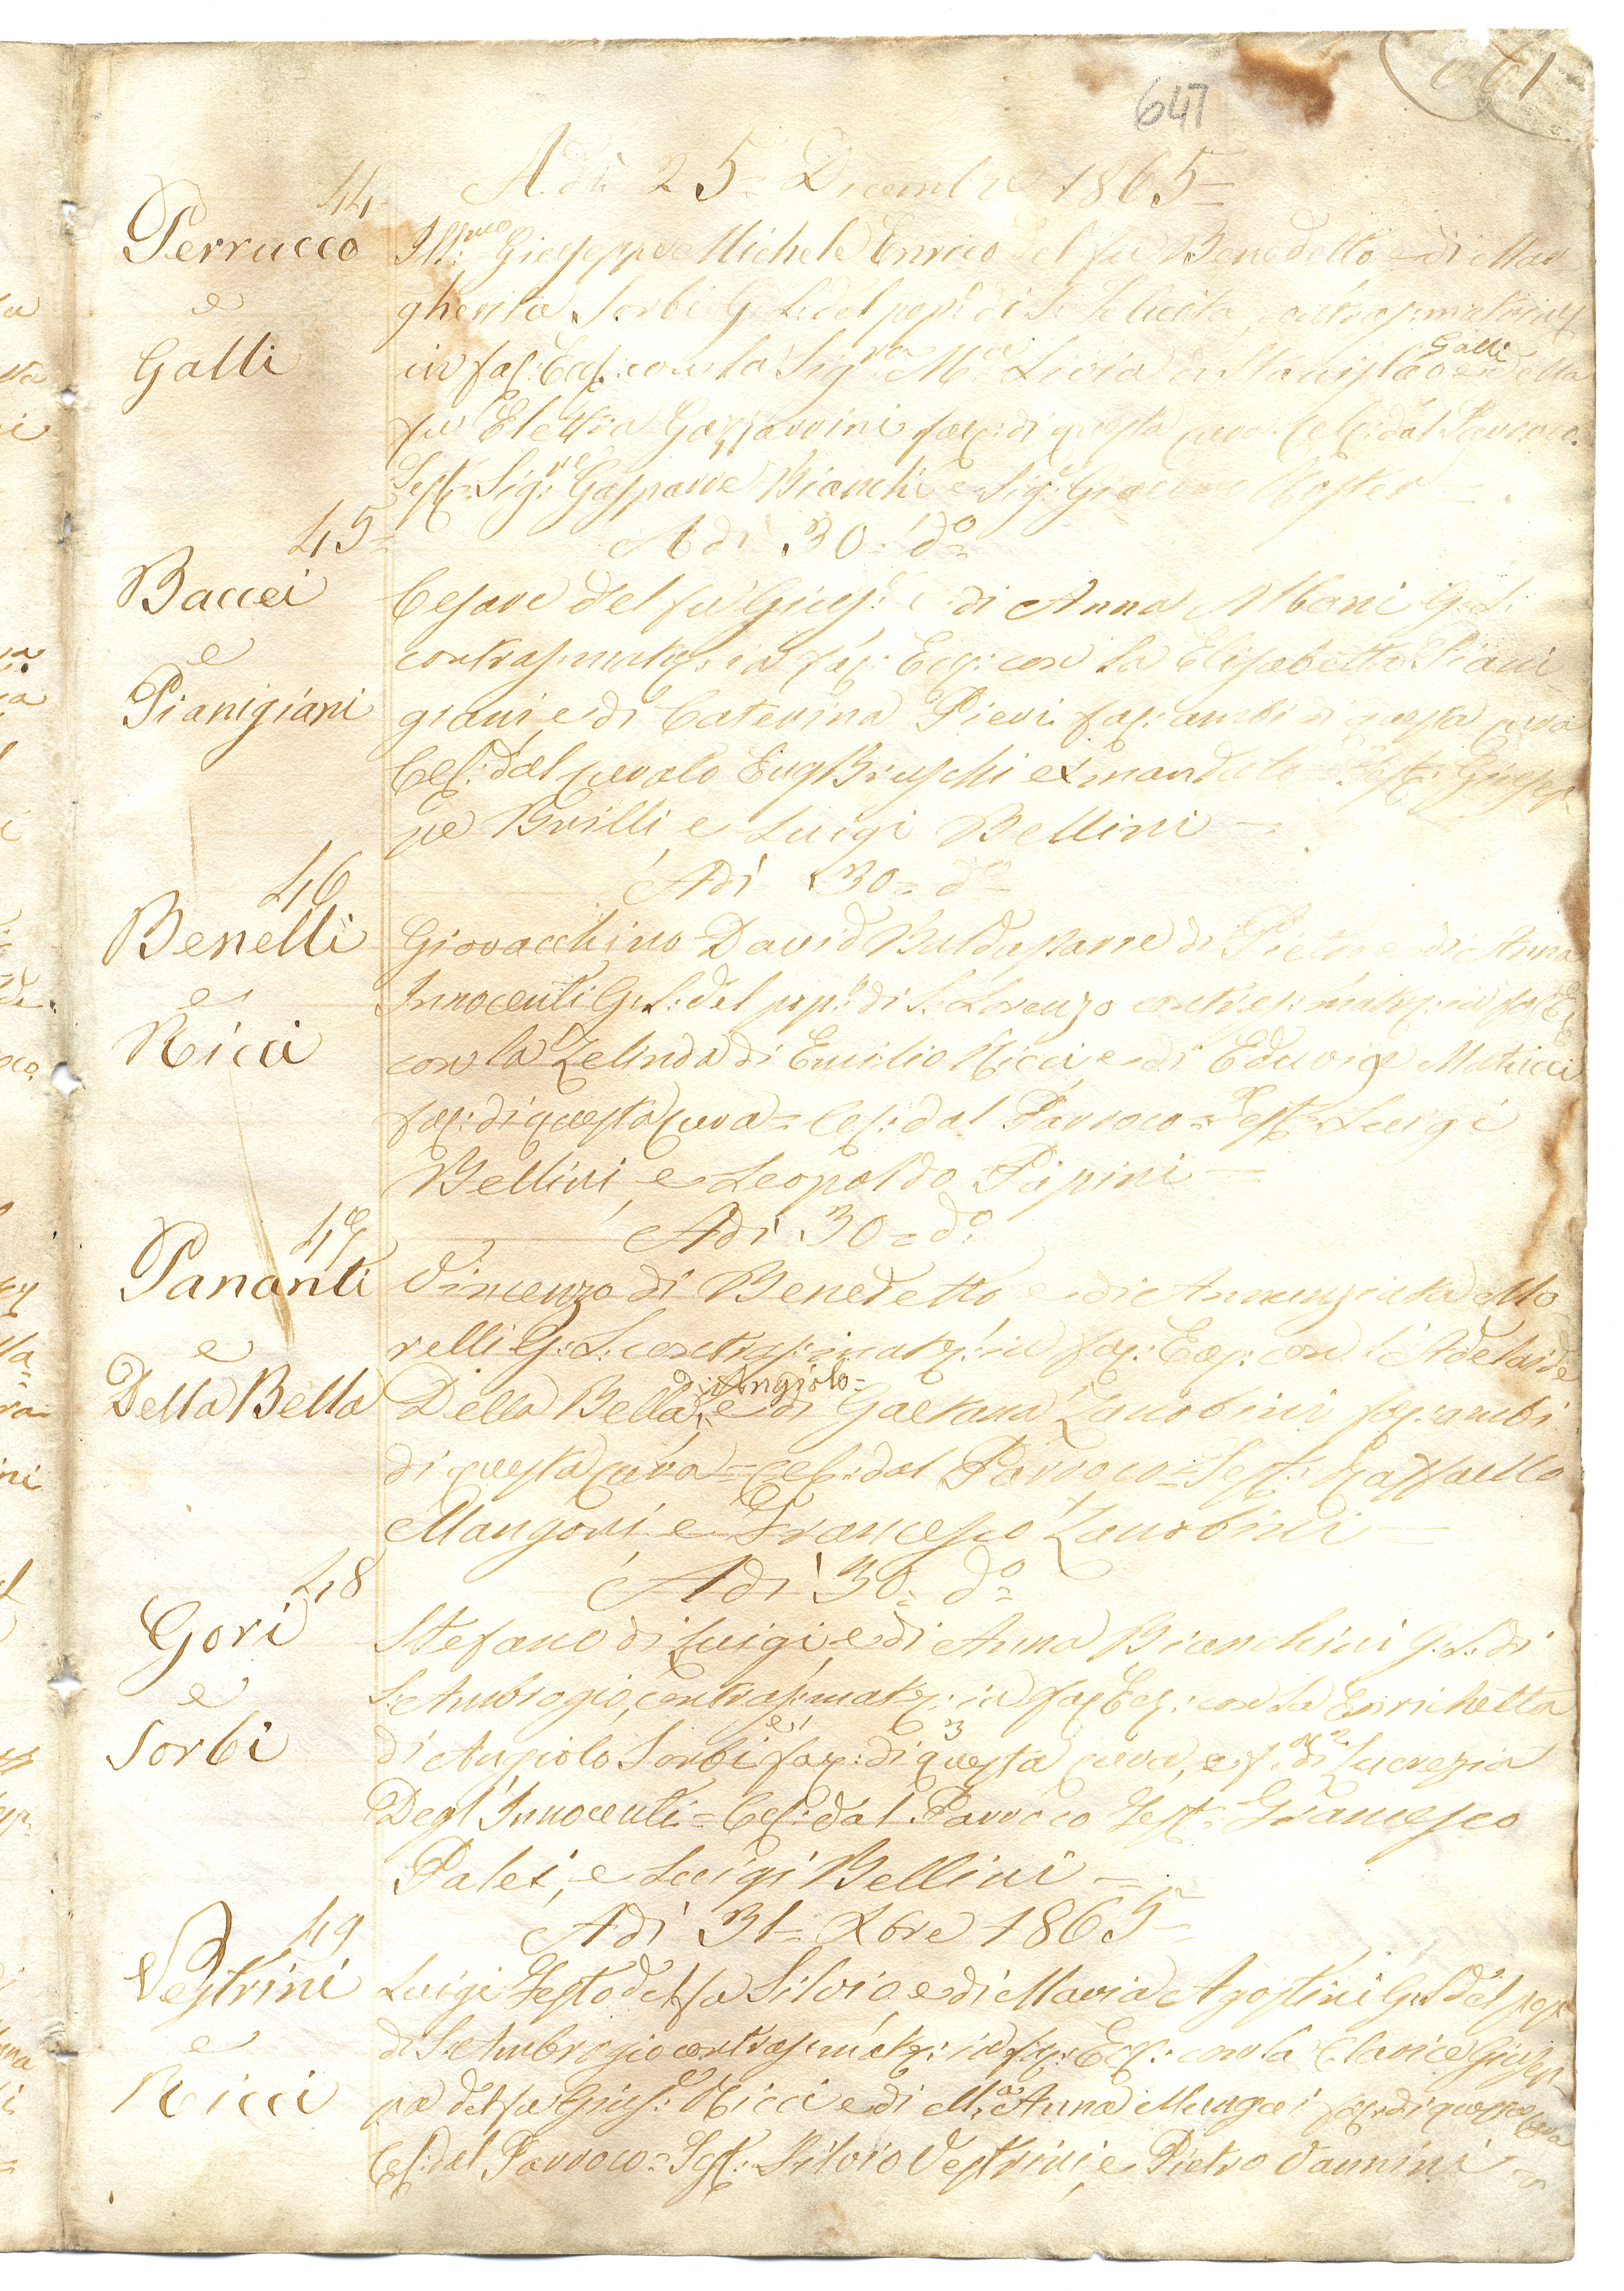 647
A dì 25= Dicembre 1865=
44
Perrucco
e
Galli
Ill:mo Giuseppe Michele Enrico del fu Benedetto e di Mar
gherita Sorbi G. L: del pop:o di S. Felicita
in fac: Eccl: con la Sig:ra M:a Livia di Stanislao Galli e della
fu Elettra Gazzarrini di questa cura. Cel: dal Parroco.
Test:= Sig:re Gaspare Bianchi e Sig:e Giacomo =
45=
A dì 30= d:o
Baccei
e
Pianigiani
Cesare del fu Gius:e e di Anna Albani G: L:
contras: matr: in fac: Ecc: con la Elisabetta Piani
giani, e di Caterina Pieri ambi di questa cura
Cel: dal curato Eug Bruschi ex mandato= Test: Giusep
pe Brilli e Luigi Bellini =
46
A dì 30= d:o
Benelli
e
Ricci
Giovacchino David Baldassarre di Pietro e di Anna
Innocenti G: L: del pop:o di S: Lorenzo contras: matr: in fac: Ec:
con la Zelinda di Emilio Ricci, e di Eduvige Matucci
di questa cura= Cel: dal Parroco= Test:= Luigi
Bellini, e Leopoldo Papini =
47
A dì 30= d:o
Pananti
e
Della Bella
Vincenzo di Benedetto e di Annunziata Mo
relli G: L: contras: matr: in fac: Ecc: con l'Adelaide
Della Bella di Angiolo= e di Gaetana Zanobini ambi
di questa cura= Cel: dal Parroco= Test: Raffaello
Mangoni e Francesco Zanobini =
48
A dì 30= d:o
Gori
e
Sorbi
Stefano di Luigi, e di Anna Bianchini G: L: di
S: Ambrogio, contras: matr: in fac: Ecc: con la Enrichetta
di Angiolo Sorbi di questa cura, e di Lucrezia
Degl'Innocenti= Cel: dal Parroco Test: Francesco
Palei, e Luigi Bellini =
49
A dì 31= Xbre 1865=
Vestrini
e
Ricci
Luigi del fu Silvio, e di Maria Agostini G: L: del pop:o
di S: Ambrogio contras: matr: in fac: Ecc: con la Clarice Giusep
pa del fu Gius:e Ricci e di M:a Anna di questa cura
Cel: dal Parroco= Test: Silvio Vestrini, e Pietro Vannini =